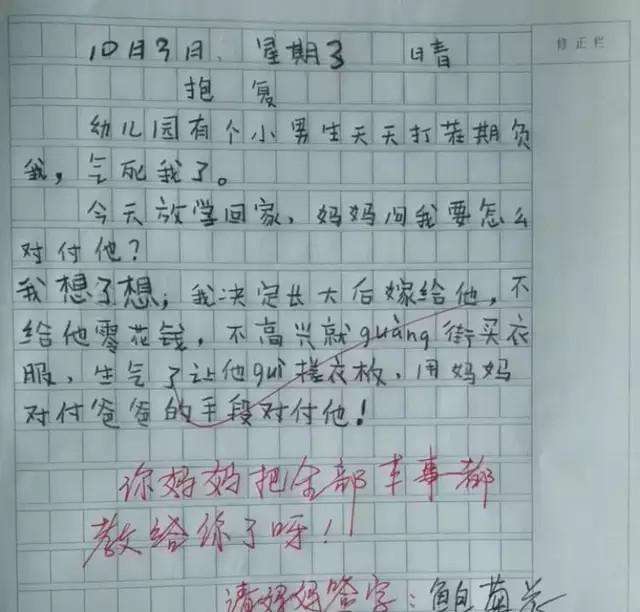 10月3日 星期3 晴
修正栏
抱复
幼儿园有个小男生天天打茬期负
我，气死我了。
今天放学回家，妈妈问我要怎么
对付他？
我想了想；我决定长大后嫁给他，不
给他零花钱，不高兴就guàng街买衣
服，生气了让他guì搓衣板，用妈妈
对付爸爸的手段对付他！
你妈妈把全部本事都
教给你了呀！
请妈妈签字：鲍